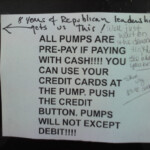 8 years of Republican leadership
gets us this!
ALL PUMPS ARE
PRE-PAY IF PAYING
WITH CASH!!!! YOU
CAN USE YOUR
CREDIT CARDS AT
THE PUMP. PUSH
THE CREDIT
BUTTON. PUMPS
WILL NOT EXCEPT
DEBIT!!!!